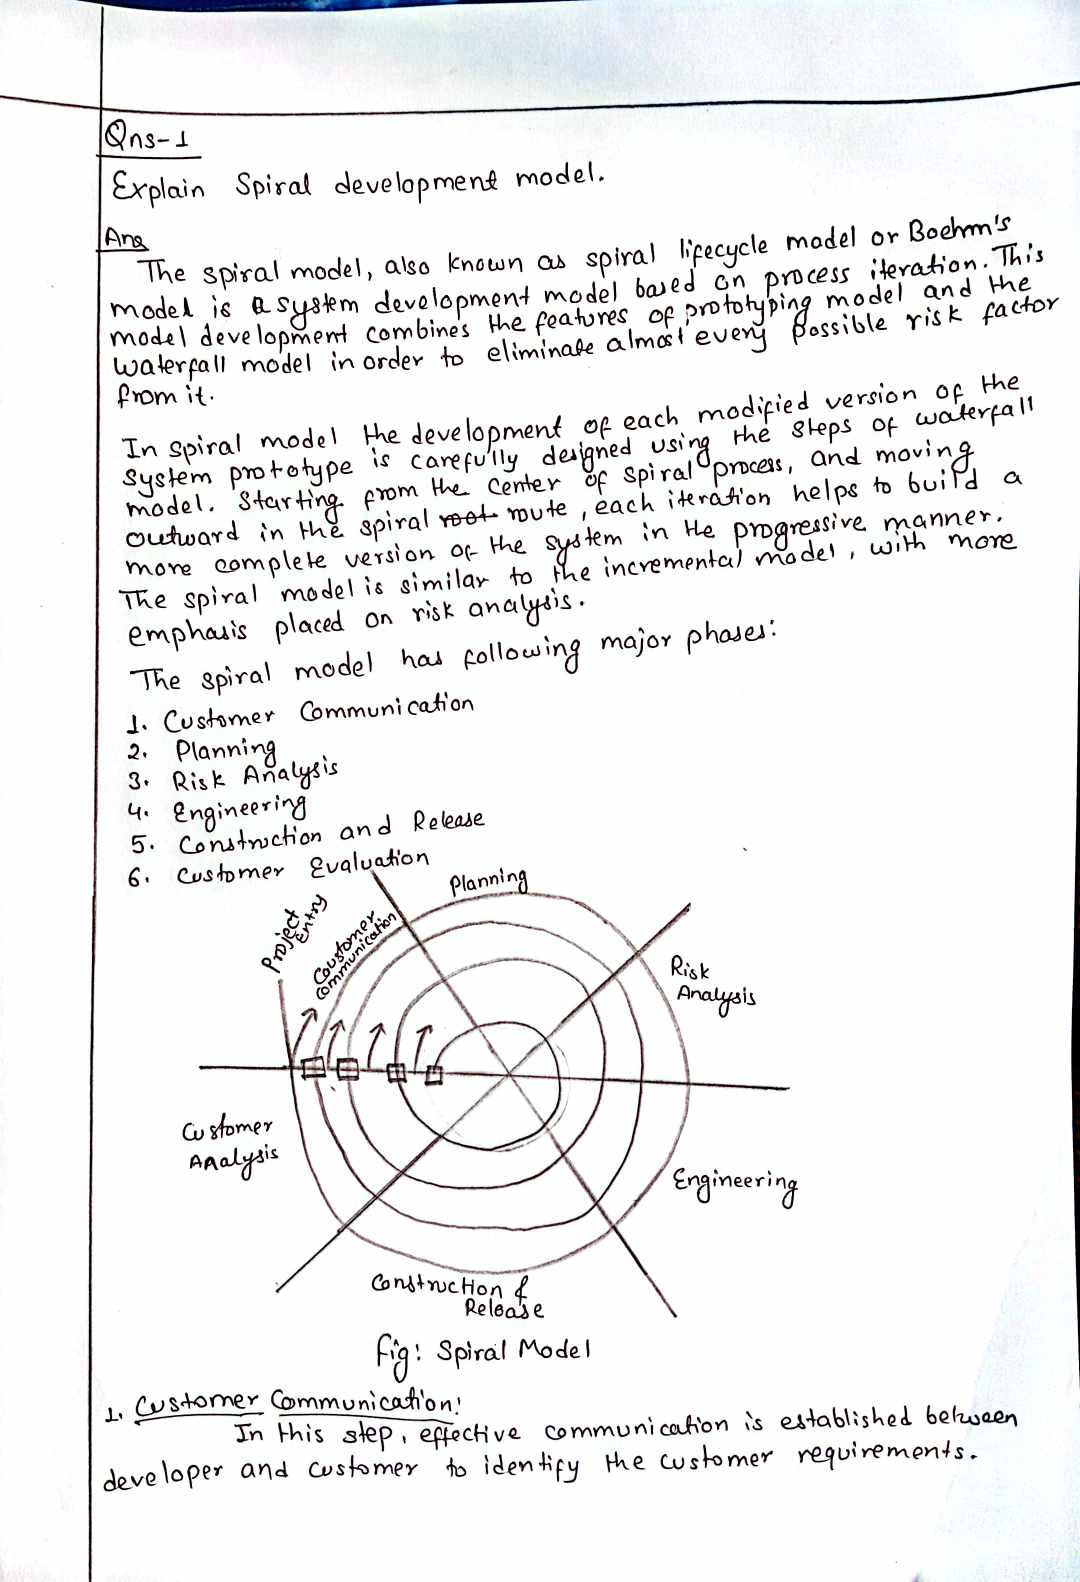 Qns-1
Explain Spiral development model.
Ans
The spiral model, also known as spiral lifecycle model or Boehm's
model is a system development model based on process iteration. This
model development combines the features of prototyping model and the
waterfall model in order to eliminate almost every possible risk factor
from it.
In spiral model the development of each modified version of the
system prototype is carefully designed using the steps of waterfall
model. Starting from the center of spiral process, and moving
outward in the spiral root route, each iteration helps to build a
more complete version of the system in the progressive manner.
The spiral model is similar to the incremental model, with more
emphasis placed on risk analysis.
The spiral model has following major phases:
1. Customer Communication
2. Planning
3. Risk Analysis
4. Engineering
5. Construction and Release
6. Customer Evaluation
Planning
Project
Entry
Coustomer
Communication
Risk
Analysis
Customer
Analysis
Engineering
Construction &
Release
fig: Spiral Model
1. Customer Communication:
In this step, effective communication is established between
developer and customer to identify the customer requirements.